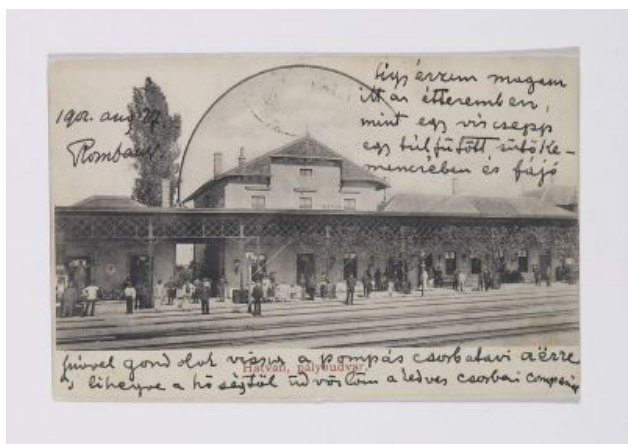 1902. aug 27.
Rombauer
Úgy érzem magam
itt az étteremben,
mint egy vizcsepp
egy túlfűtött sütőke-
menczében és fájó
szívvel gondolok vissza a pompás csorbatavi aërre
s lihegve a hőségtől üdvözlöm a kedves csorbai compániát
Hatvan, pályaudvar.